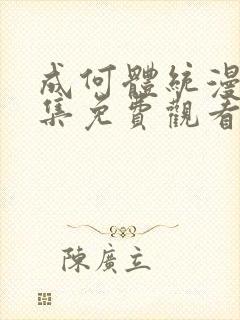 成何體統漫
集免費觀看
陳廣立